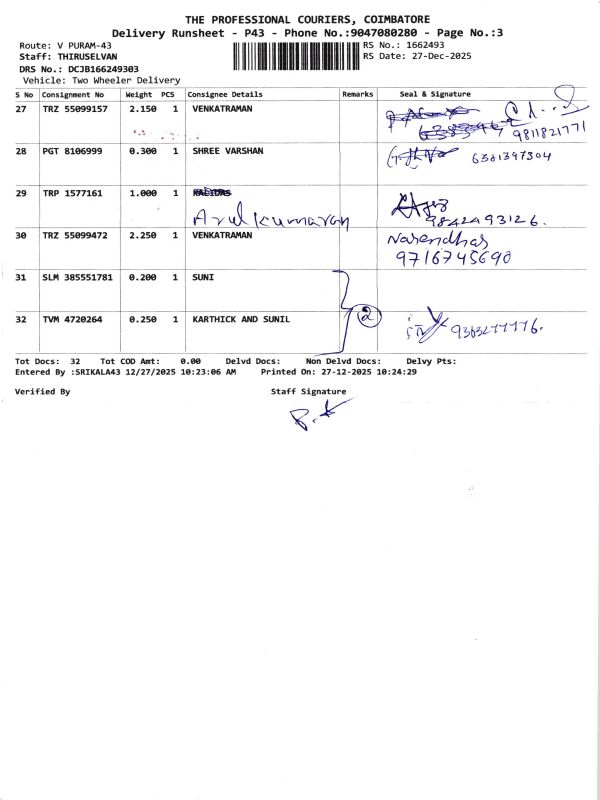 THE PROFESSIONAL COURIERS, COIMBATORE
Delivery Runsheet - P43 - Phone No.:9047080280 - Page No.:3
Route: V PURAM-43 RS No.: 1662493
Staff: THIRUSELVAN RS Date: 27-Dec-2025
DRS No.: DCJB166249303
Vehicle: Two Wheeler Delivery
S No Consignment No Weight PCS Consignee Details Remarks Seal & Signature
27 TRZ 55099157 2.150 1 VENKATRAMAN
9811821771
28 PGT 8106999 0.300 1 SHREE VARSHAN 6381397304
29 TRP 1577161 1.000 1
Arulkumaran 9842493126.
30 TRZ 55099472 2.250 1 VENKATRAMAN Narendhar
9716745690
31 SLM 385551781 0.200 1 SUNI
2
32 TVM 4720264 0.250 1 KARTHICK AND SUNIL
Tot Docs: 32 Tot COD Amt: 0.00 Delvd Docs: Non Delvd Docs: Delvy Pts:
Entered By :SRIKALA43 12/27/2025 10:23:06 AM Printed On: 27-12-2025 10:24:29
Verified By Staff Signature